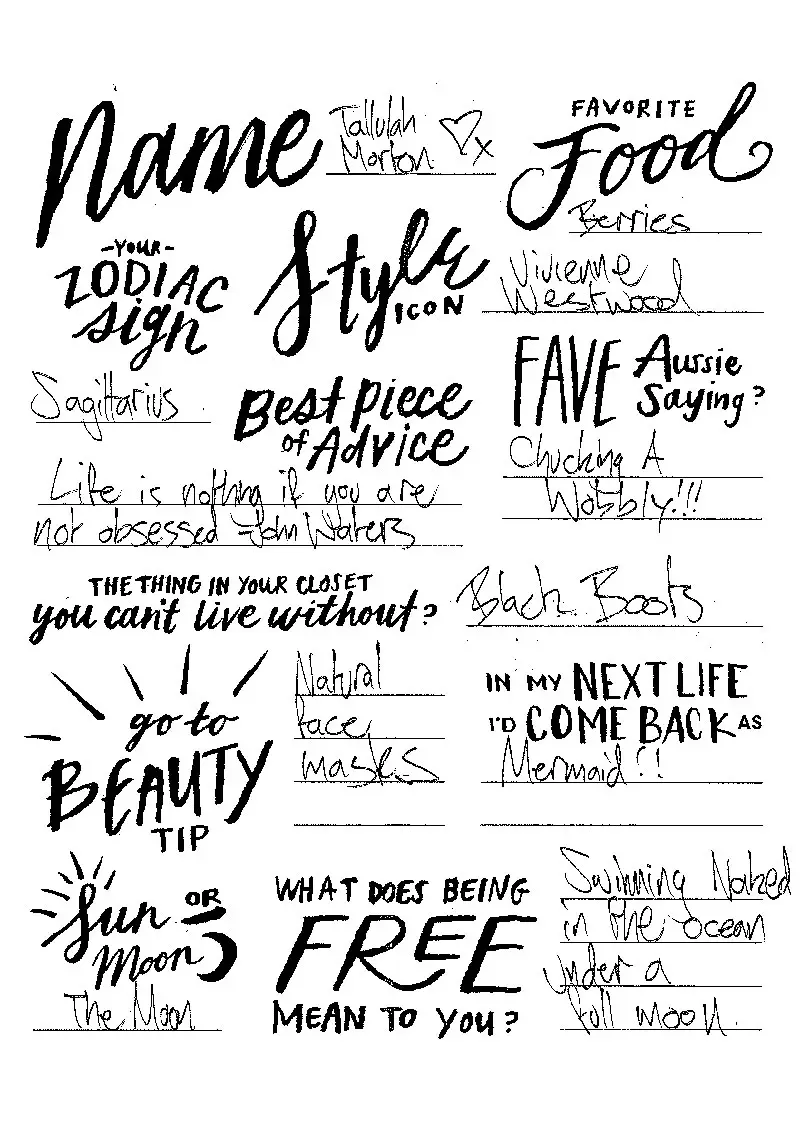 Name
Tallulah
Morton ♡x
FAVORITE
Food
Berries
-YOUR-
ZODIAC
sign
Sagittarius
Style
ICON
Vivienne
Westwood
FAVE Aussie
Saying?
Chucking A
Wobbly!!!
Best piece
of Advice
Life is nothing if you are
not obsessed -John Waters
THE THING IN YOUR CLOSET
you can't live without?
Black Boots
go to
BEAUTY
TIP
Natural
face
masks
IN MY NEXT LIFE
I'D COME BACK AS
Mermaid!!
Sun OR
Moon
The Moon
WHAT DOES BEING
FREE
MEAN TO YOU?
Swimming Naked
in the ocean
under a
full moon.